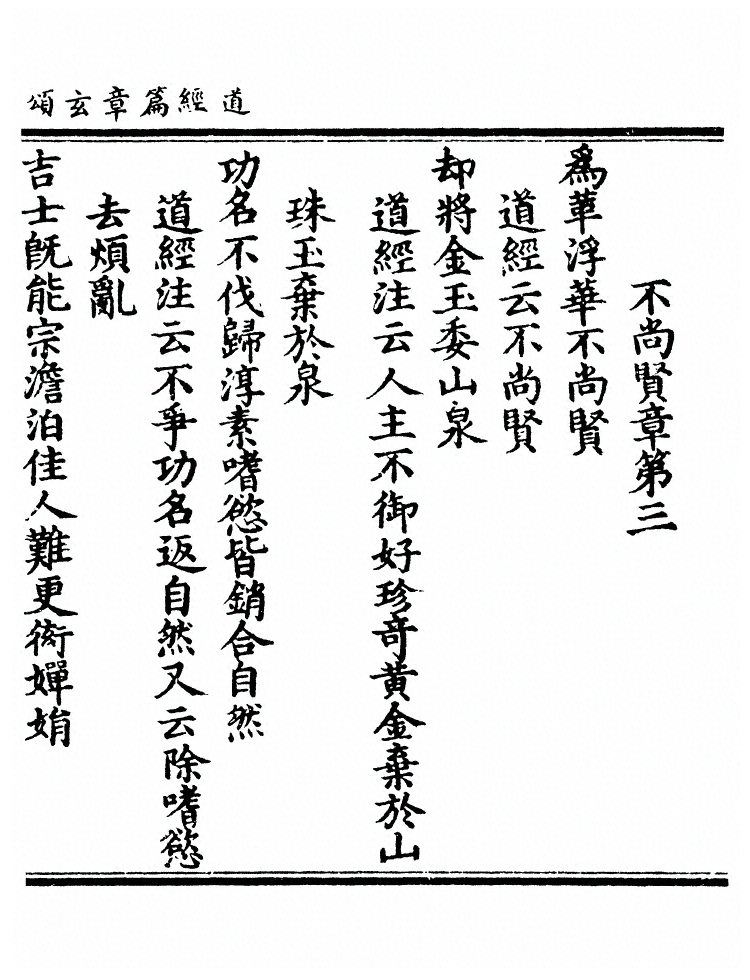 道經篇章玄頌
不尚賢章第三
爲華浮華不尚賢
道經云不尚賢
却將金玉委山泉
道經注云人主不御好珍奇黃金棄於山
珠玉棄於泉
功名不伐歸淳素嗜慾皆銷合自然
道經注云不爭功名返自然又云除嗜慾
去煩亂
吉士旣能宗澹泊佳人難更衒嬋娟